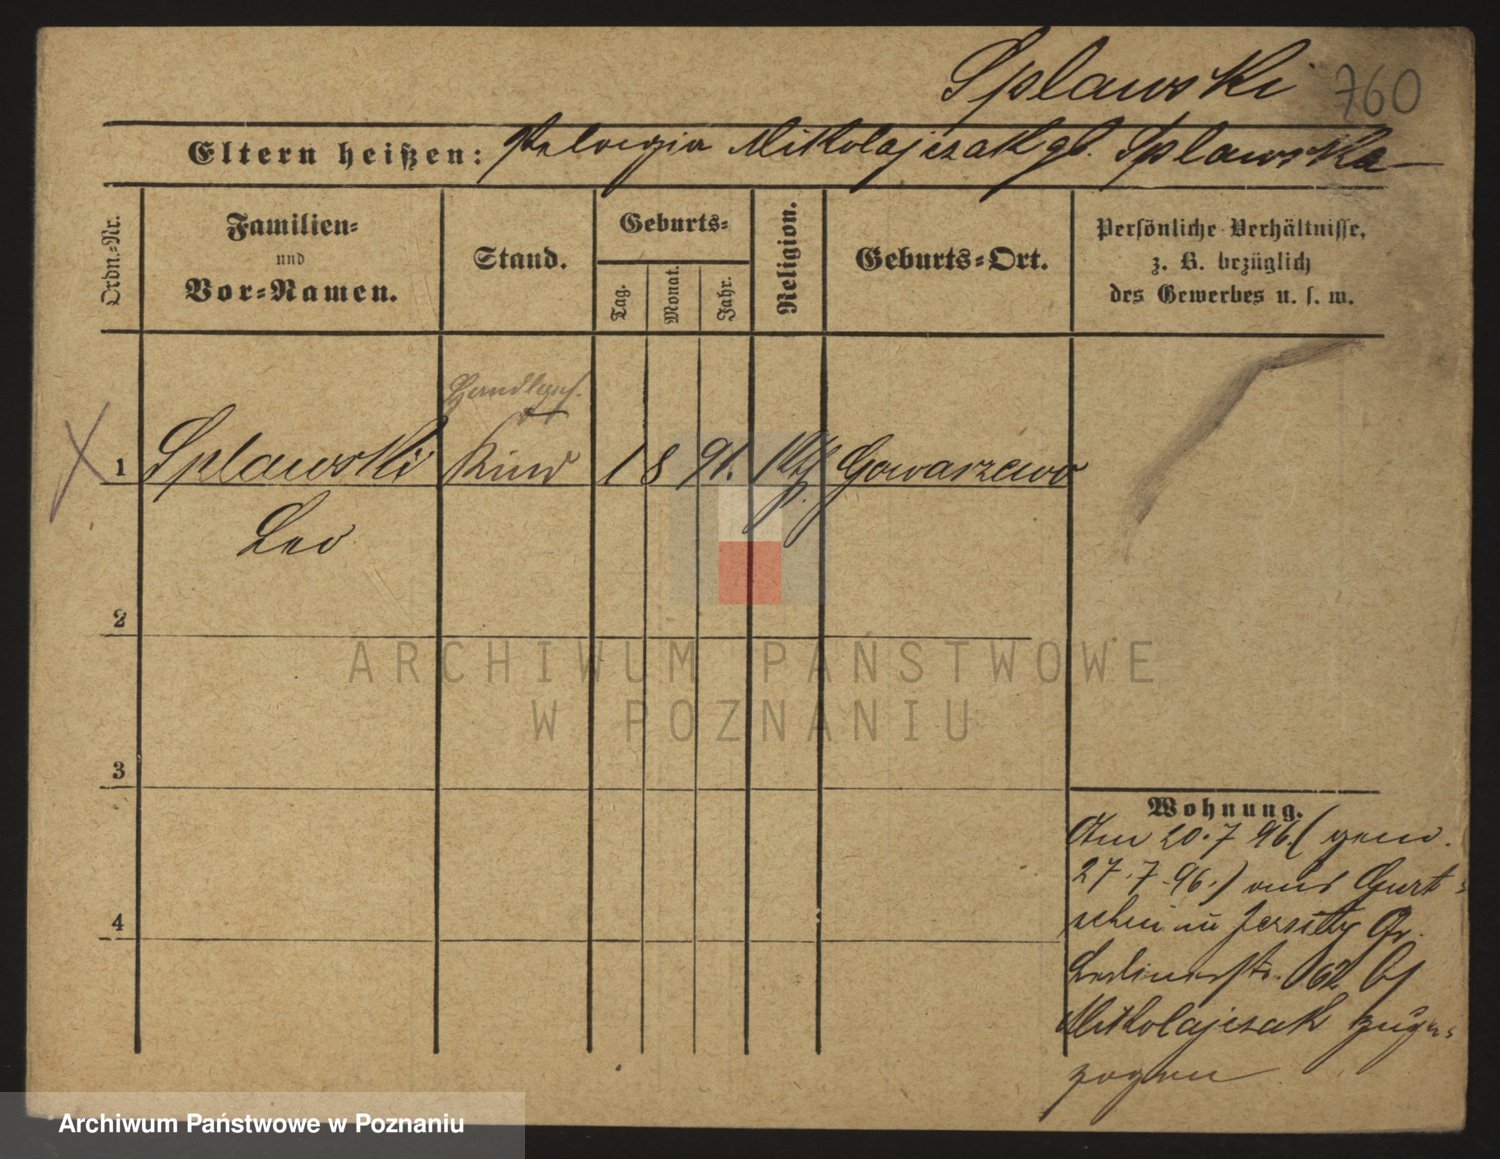 Splawski 760
Eltern heißen: Pelagia Mikolajczak gb. Splawska
Ordn.-Nr.
Familien- und Vor-Namen.
Stand.
Geburts-
Tag. Monat. Jahr.
Religion.
Geburts-Ort.
Persönliche Verhältnisse,
z. B. bezüglich
des Gewerbes u. s. w.
1 Splawski Kind 1 8 91. kth. Gowarzewo
Leo
2
ARCHIWUM PAŃSTWOWE
W POZNANIU
3
Wohnung.
Am 20.7 96. ( gem.
27.7.96.) aus Gurt-
schin in Jersitz Gr.
Berlinerstr. 62 bei
Mikolajczak zuge-
zogen
4
Archiwum Państwowe w Poznaniu